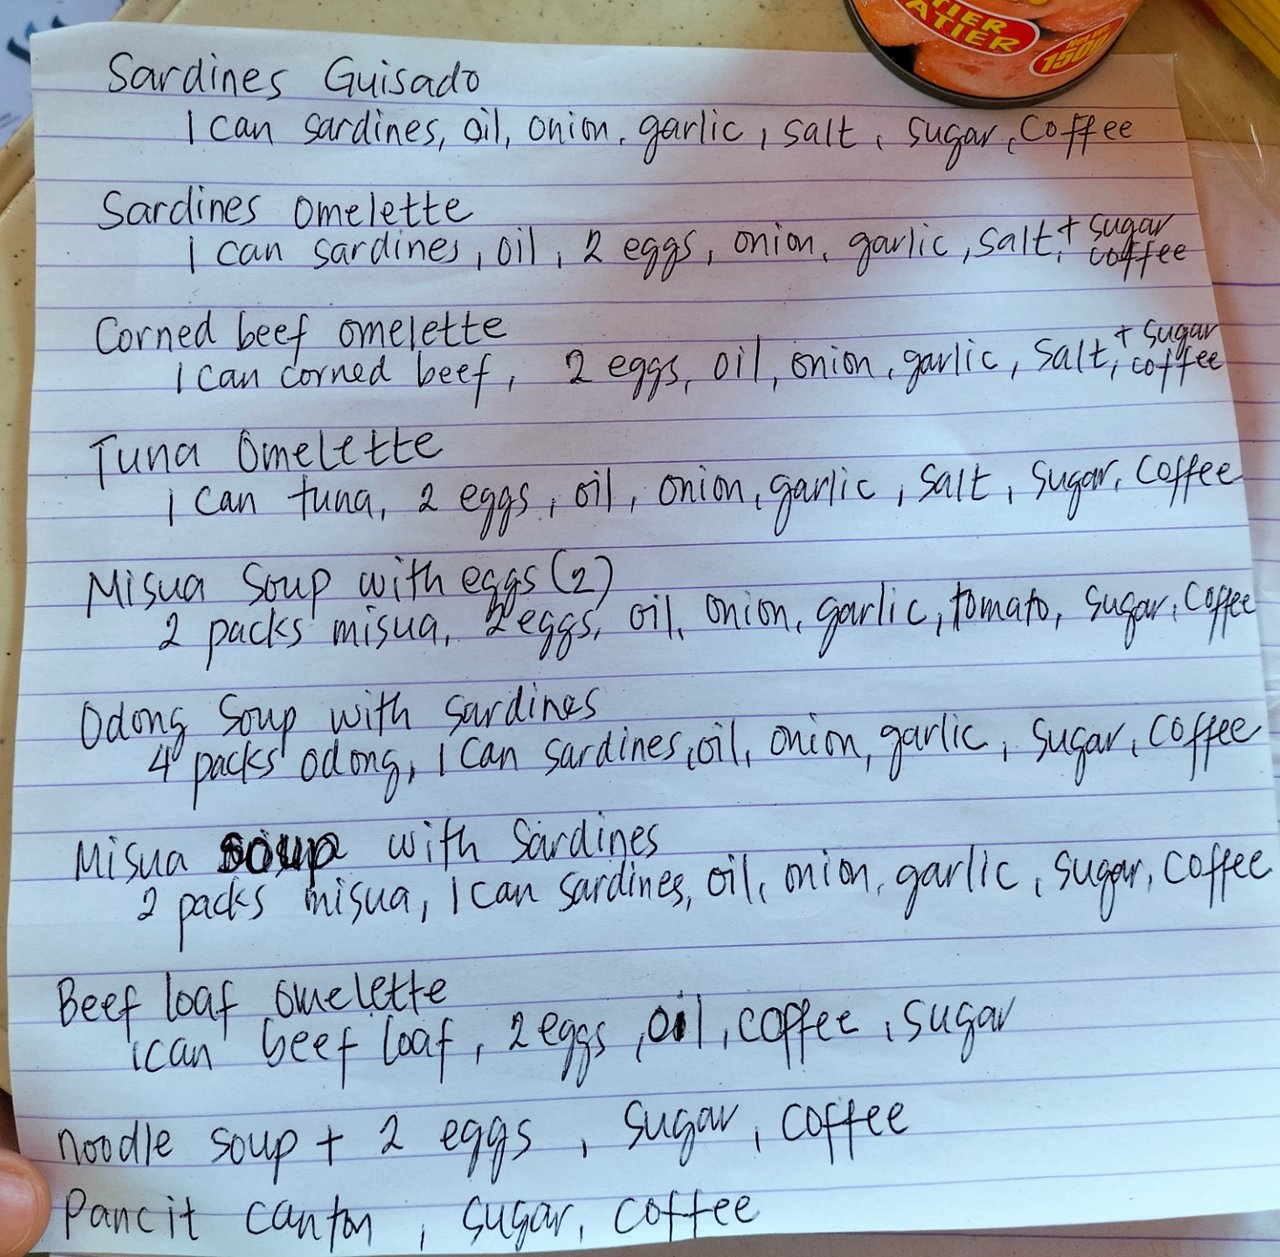 TIER
ATIER
Net Wt.
150g
Sardines Guisado
1 can sardines, oil, onion, garlic, salt, sugar, coffee
Sardines omelette
1 can sardines, oil, 2 eggs, onion, garlic, salt, + sugar
coffee
Corned beef omelette
1 can corned beef, 2 eggs, oil, onion, garlic, salt, + sugar
coffee
Tuna Omelette
1 can tuna, 2 eggs, oil, onion, garlic, salt, sugar, coffee
Misua Soup with eggs (2)
2 packs misua, 2 eggs, oil, onion, garlic, tomato, sugar, coffee
Odong Soup with sardines
4 packs odong, 1 can sardines, oil, onion, garlic, sugar, coffee
Misua soup with Sardines
2 packs misua, 1 can sardines, oil, onion, garlic, sugar, coffee
Beef loaf omelette
1 can beef loaf, 2 eggs, oil, coffee, sugar
noodle soup + 2 eggs, sugar, coffee
Pancit canton, sugar, coffee